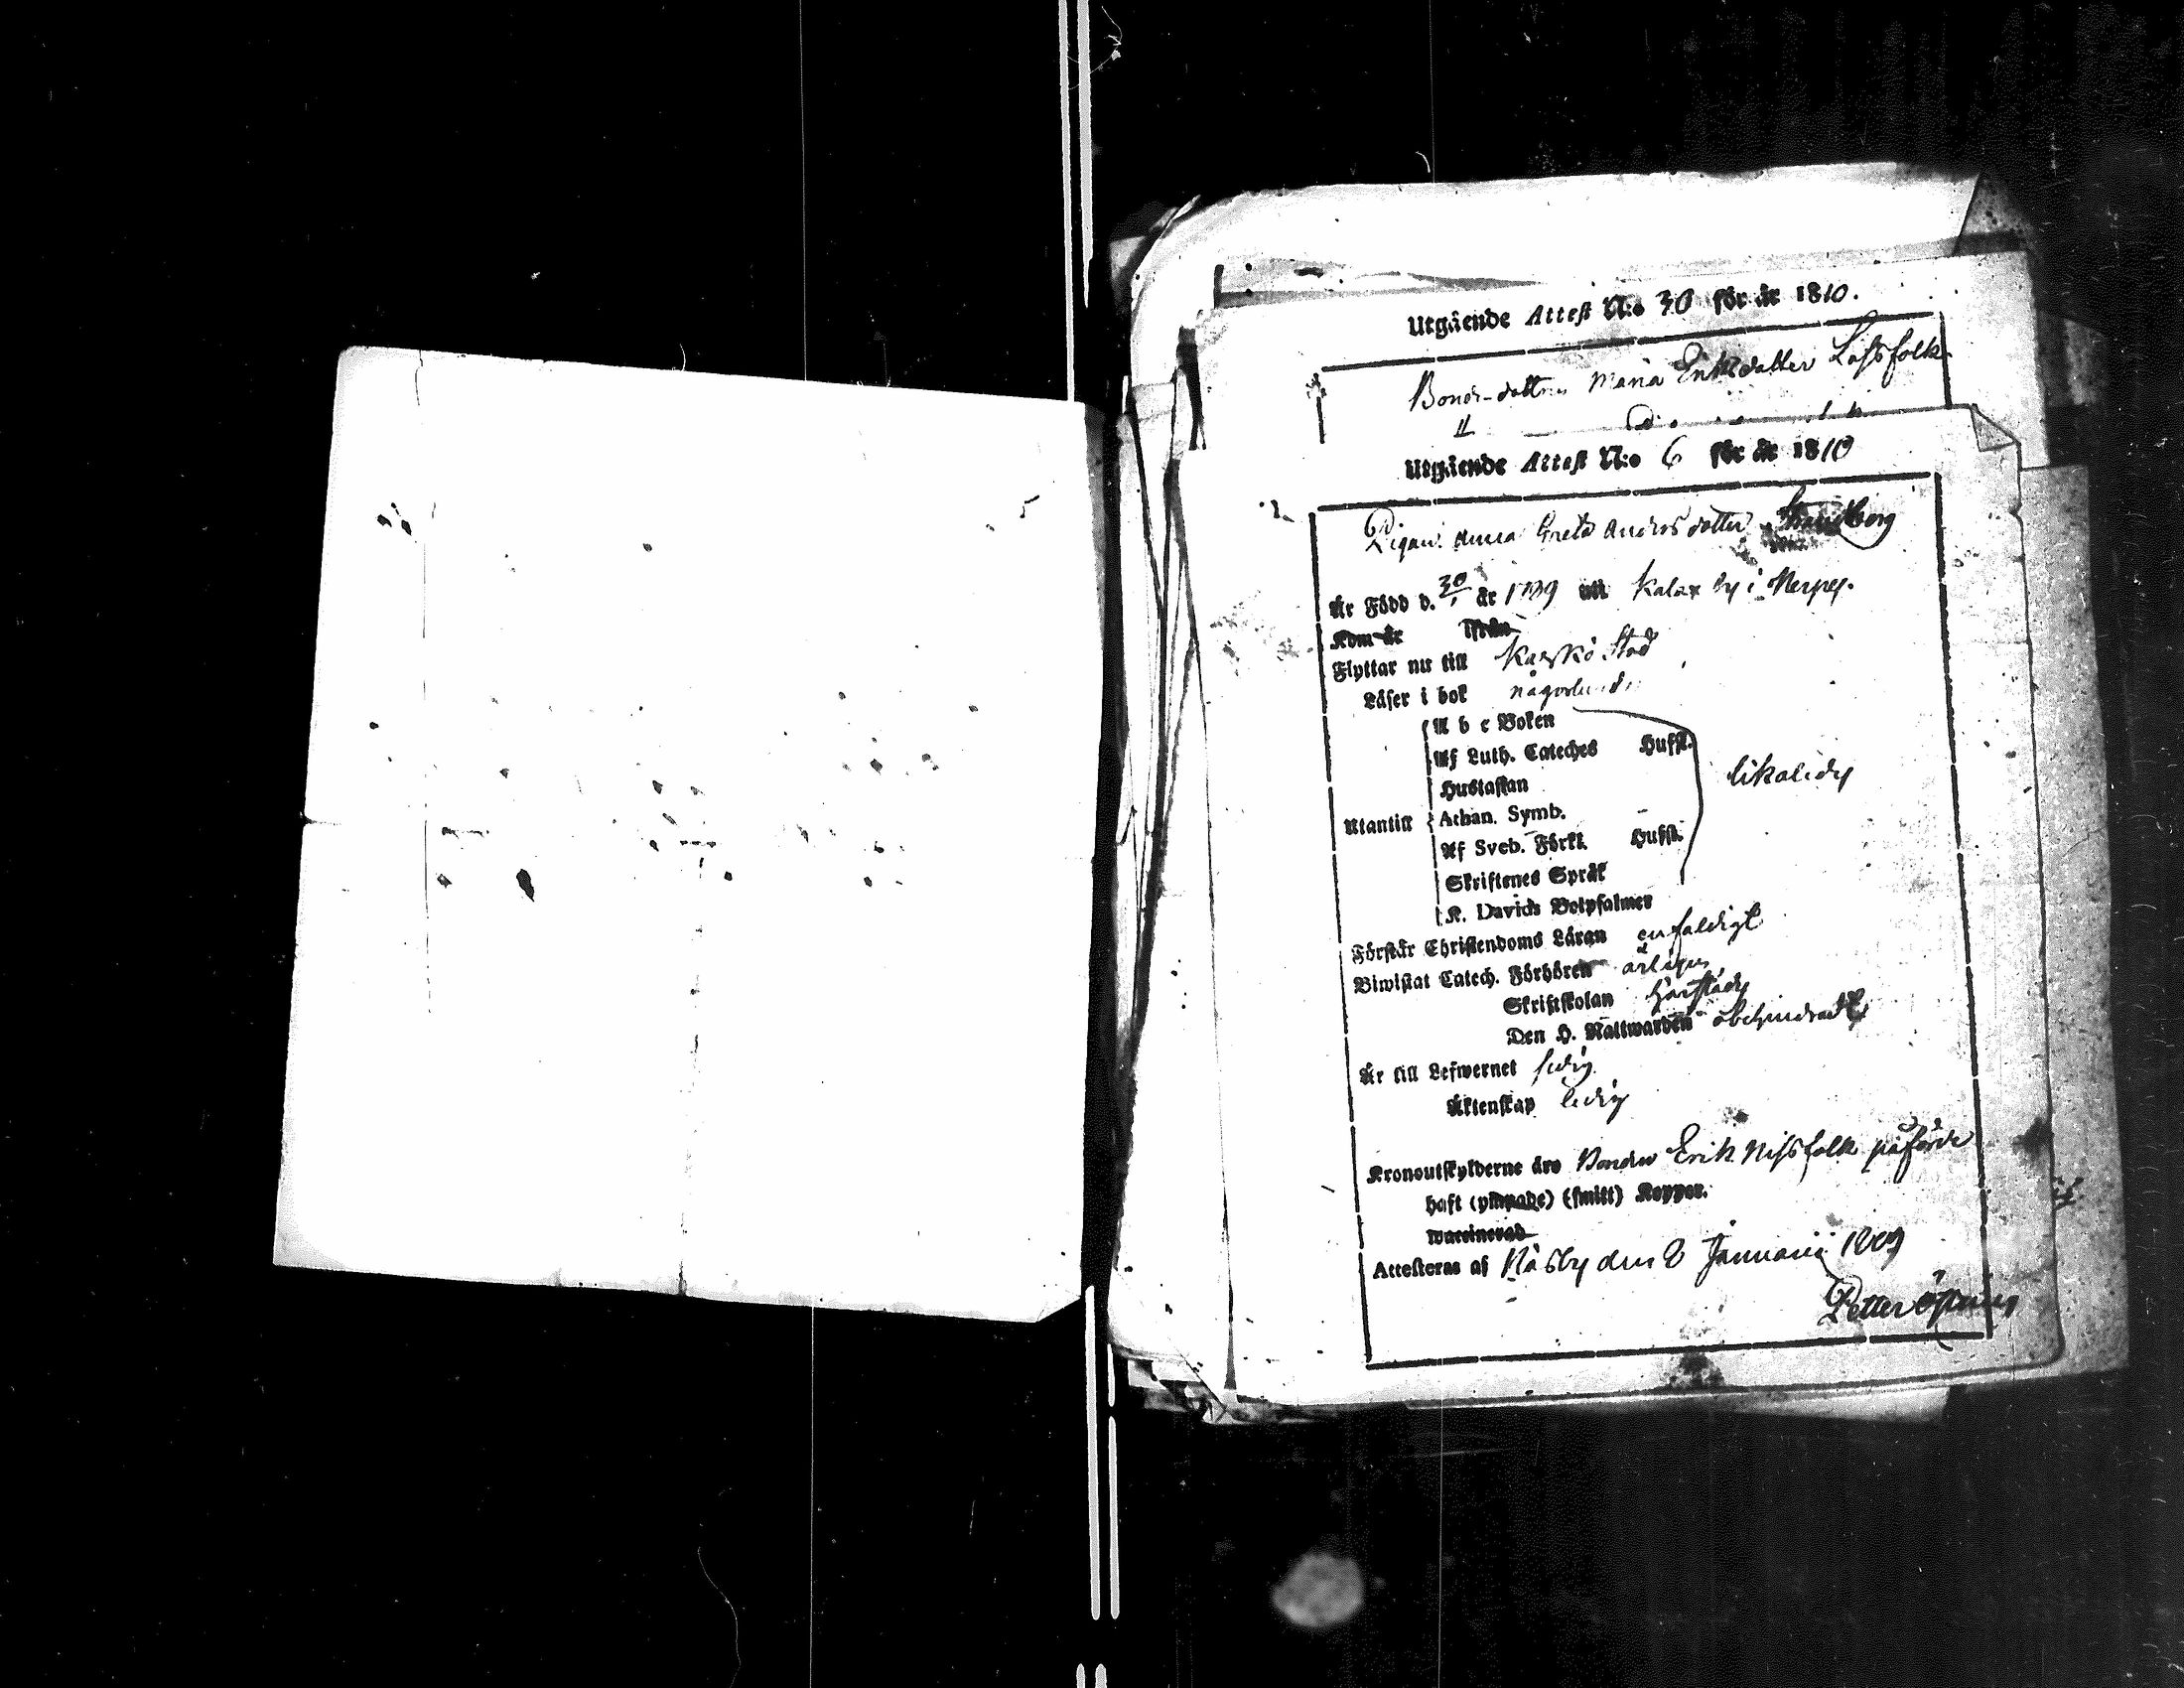 Utgående Attest N:o 30 för år 1810.
Bonde-dottren Maria Eriksdotter Lassfolk
Utgående Attest N:o 6 för år 1810
Pigan Anna Greta Andersdotter Strandberg
Är Född d. 30/1 år 1789 uti Kalax by i Nerpes.
Kom år ifrån
Flyttar nu till Kaskö Stad
Läser i bok någorlunda
A b c Boken
Af Luth. Cateches Hufst.
Hustaflan
Utantill Athan. Symb.
likaledes
Af Sveb. Förkl. Hufst.
Skriftenes Språk
K. Davids Botpsalmer
Förstår Christendoms Läran enfaldigt
Biwistat Catech. Förhören årligen
Skriftskolan härstädes
Den H. Nattwarden obehindradt
Är till Lefwernet sedig
Äktenskap ledig
Kronoutskylderne äro Bonden Erik Nissfolk påförde
haft (ympade) (smitt) Koppor.
waccinerad
Attesteras af Näsby den 8 Januarii 1809
Petter